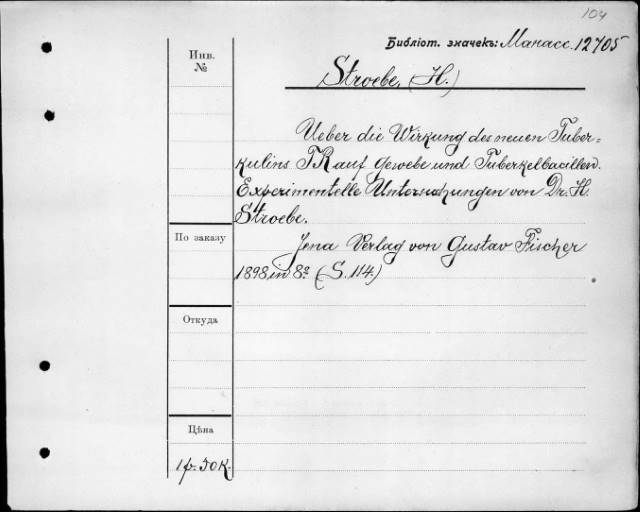 104
Библіот. значекъ: Манасс. 12705
Инв.
№
Stroebe, (H.)
Ueber die Wirkung des neuen Tuber=
kulins TR auf Gewebe und Tuberkelbacillen.
Experimentelle Untersuchungen von Dr. H.
Stroebe.
По заказу
Jena Verlag von Gustav Fischer
1898, in 8º (S. 114.)
Откуда
Цѣна
1 р. 50 к.